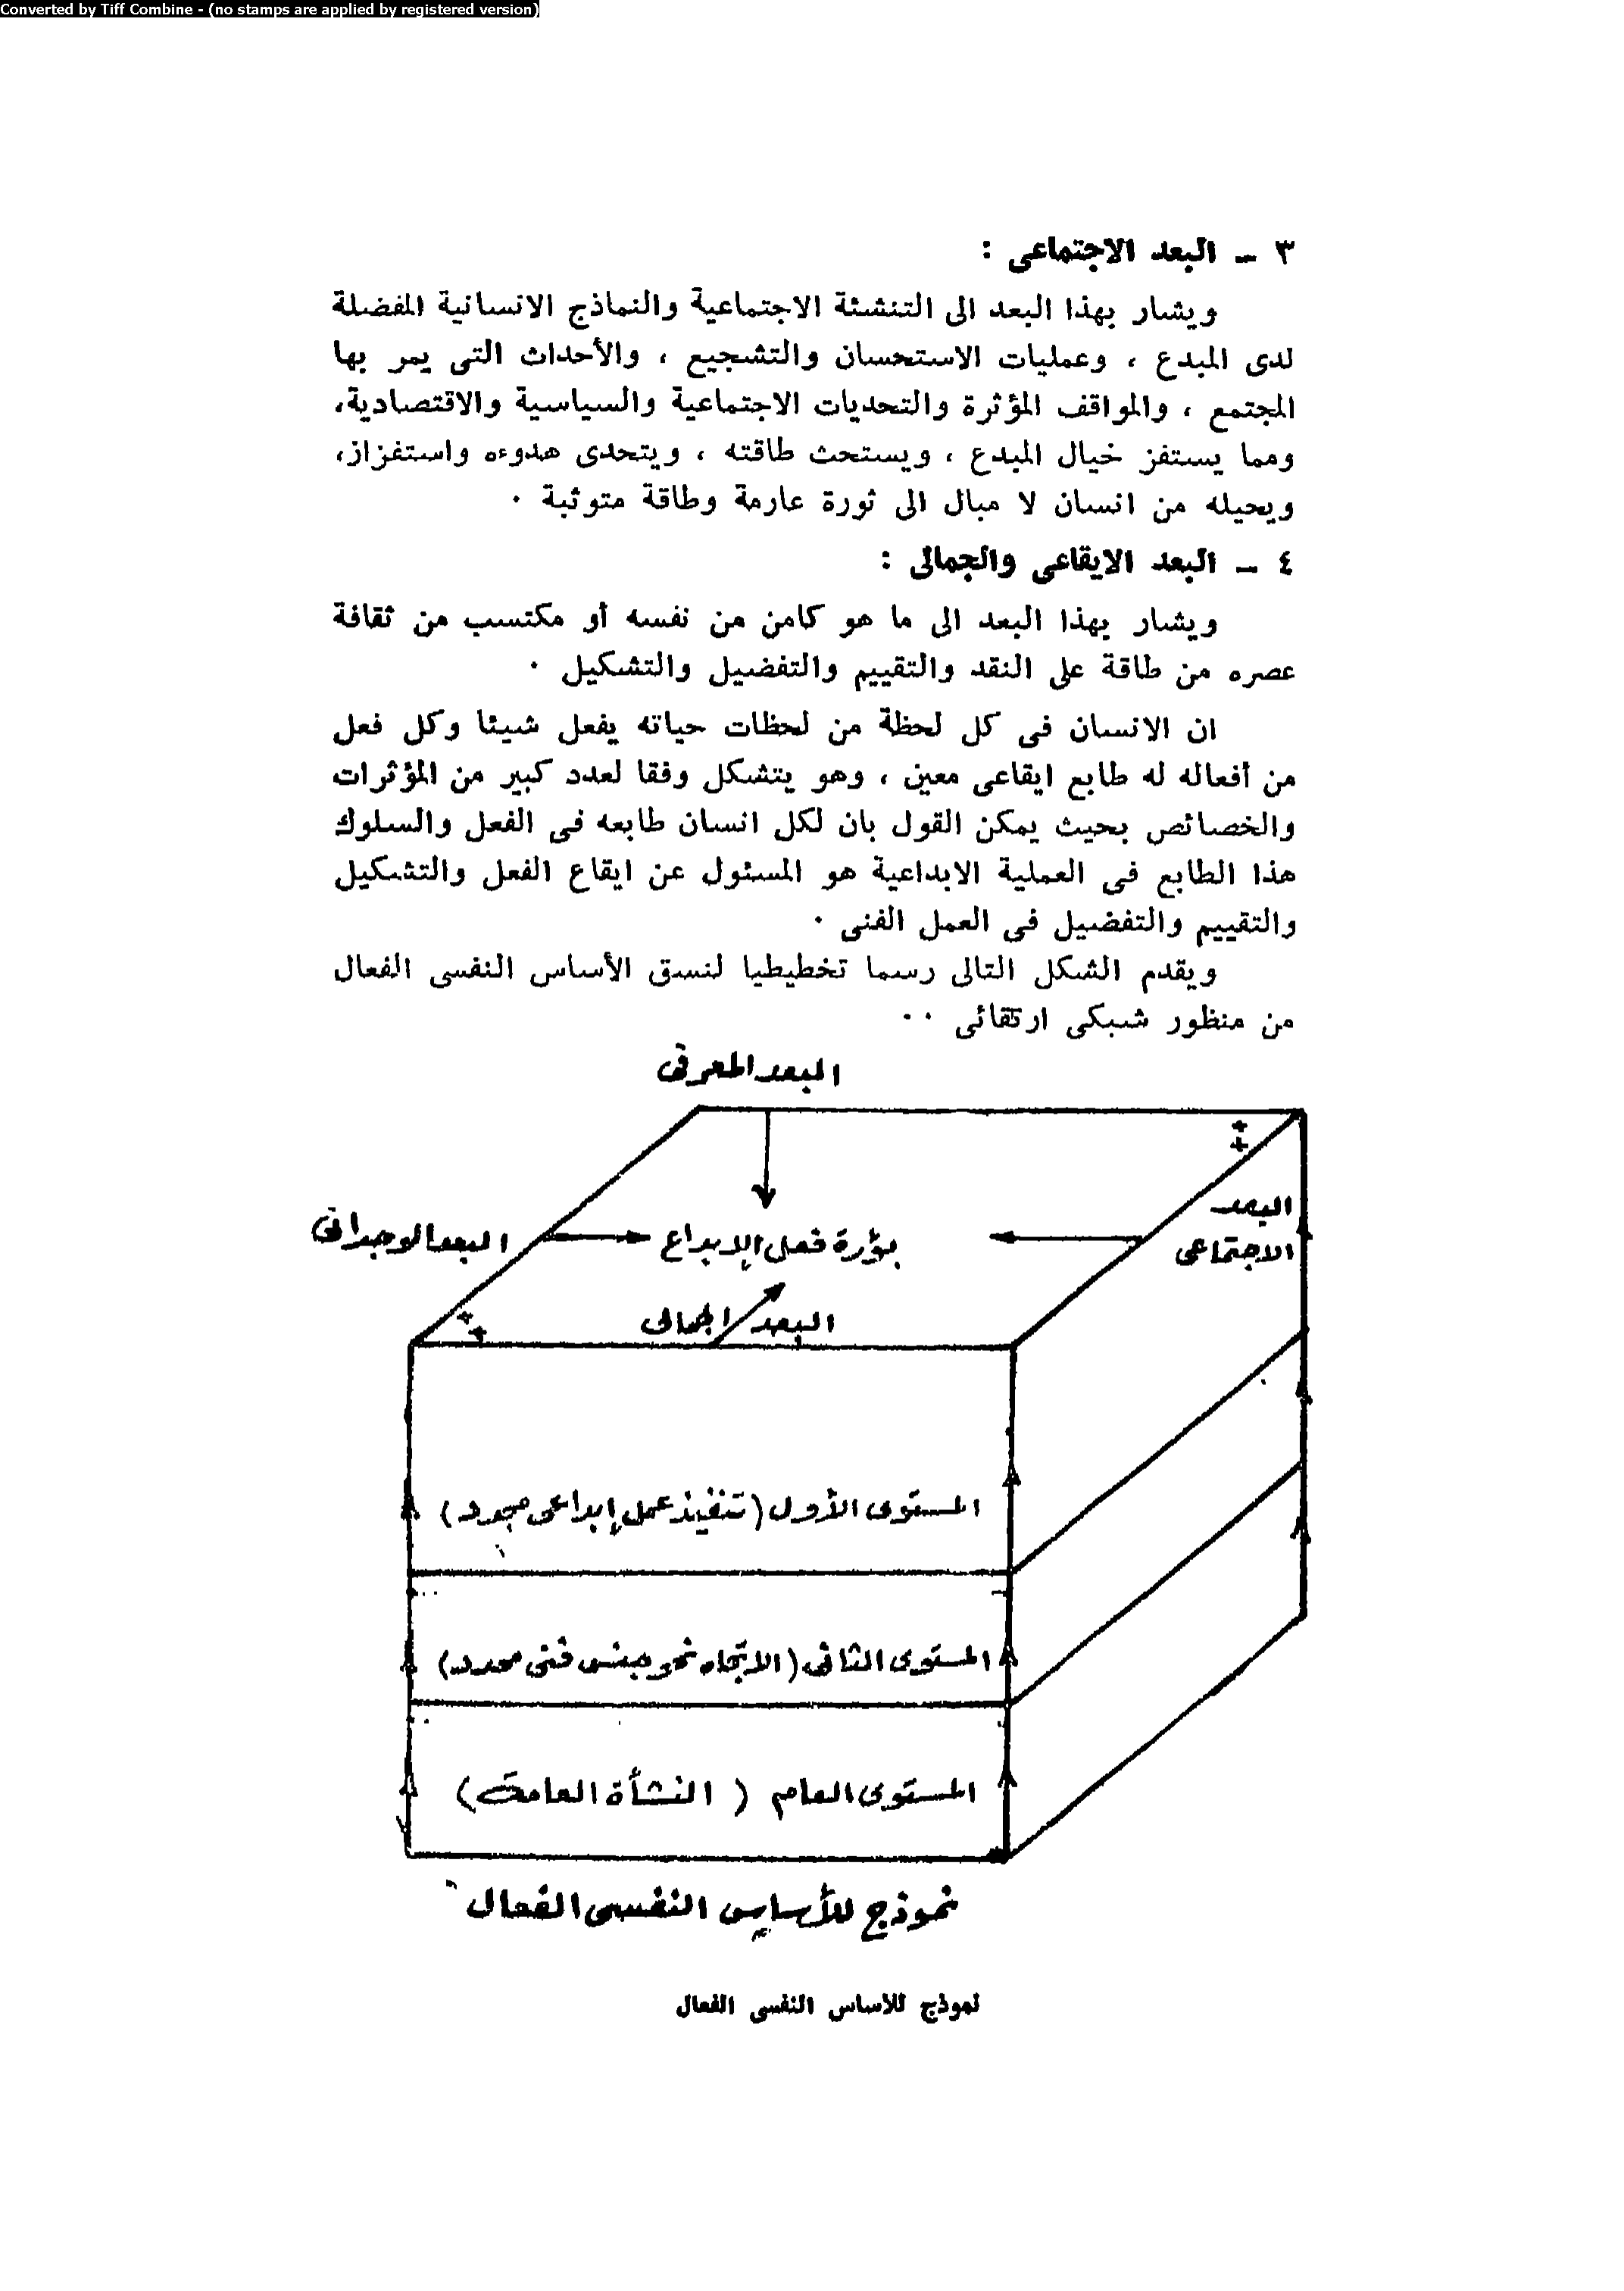 Converted by Tiff Combine - (no stamps are applied by registered version)
٣ – البعد الاجتماعى :
ويشار بهذا البعد الى التنشئة الاجتماعية والنماذج الانسانية المفضلة
لدى المبدع ، وعمليات الاستحسان والتشجيع ، والأحداث التى يمر بها
المجتمع ، والمواقف المؤثرة والتحديات الاجتماعية والسياسية والاقتصادية،
ومما يستفز خيال المبدع ، ويستحث طاقته ، ويتحدى هدوءه واستفزاز،
ويحيله من انسان لا مبال الى ثورة عارمة وطاقة متوثبة ٠
٤ – البعد الايقاعى والجمالى :
ويشار بهذا البعد الى ما هو كامن من نفسه أو مكتسب من ثقافة
عصره من طاقة على النقد والتقييم والتفضيل والتشكيل ٠
ان الانسان فى كل لحظة من لحظات حياته يفعل شيئا وكل فعل
من أفعاله له طابع ايقاعى معين ، وهو يتشكل وفقا لعدد كبير من المؤثرات
والخصائص بحيث يمكن القول بان لكل انسان طابعه فى الفعل والسلوك
هذا الطابع فى العملية الابداعية هو المسئول عن ايقاع الفعل والتشكيل
والتقييم والتفضيل فى العمل الفنى ٠
ويقدم الشكل التالى رسما تخطيطيا لنسق الأساس النفسى الفعال
من منظور شبكى ارتقائى ٠٠
البعد المعرفى
++
البعد
الاجتماعى
بؤرة فعل الإبداع
البعد الوجدانى
البعد الجمالى
++
المستوى الأول (تنفيذ عمل إبداعى محدد)
المستوى الثانى (الاتجاه نحو جنس فنى محدد)
المستوى العام (النشأة العامة)
نموذج للأساس النفسى الفعال
نموذج للأساس النفسى الفعال